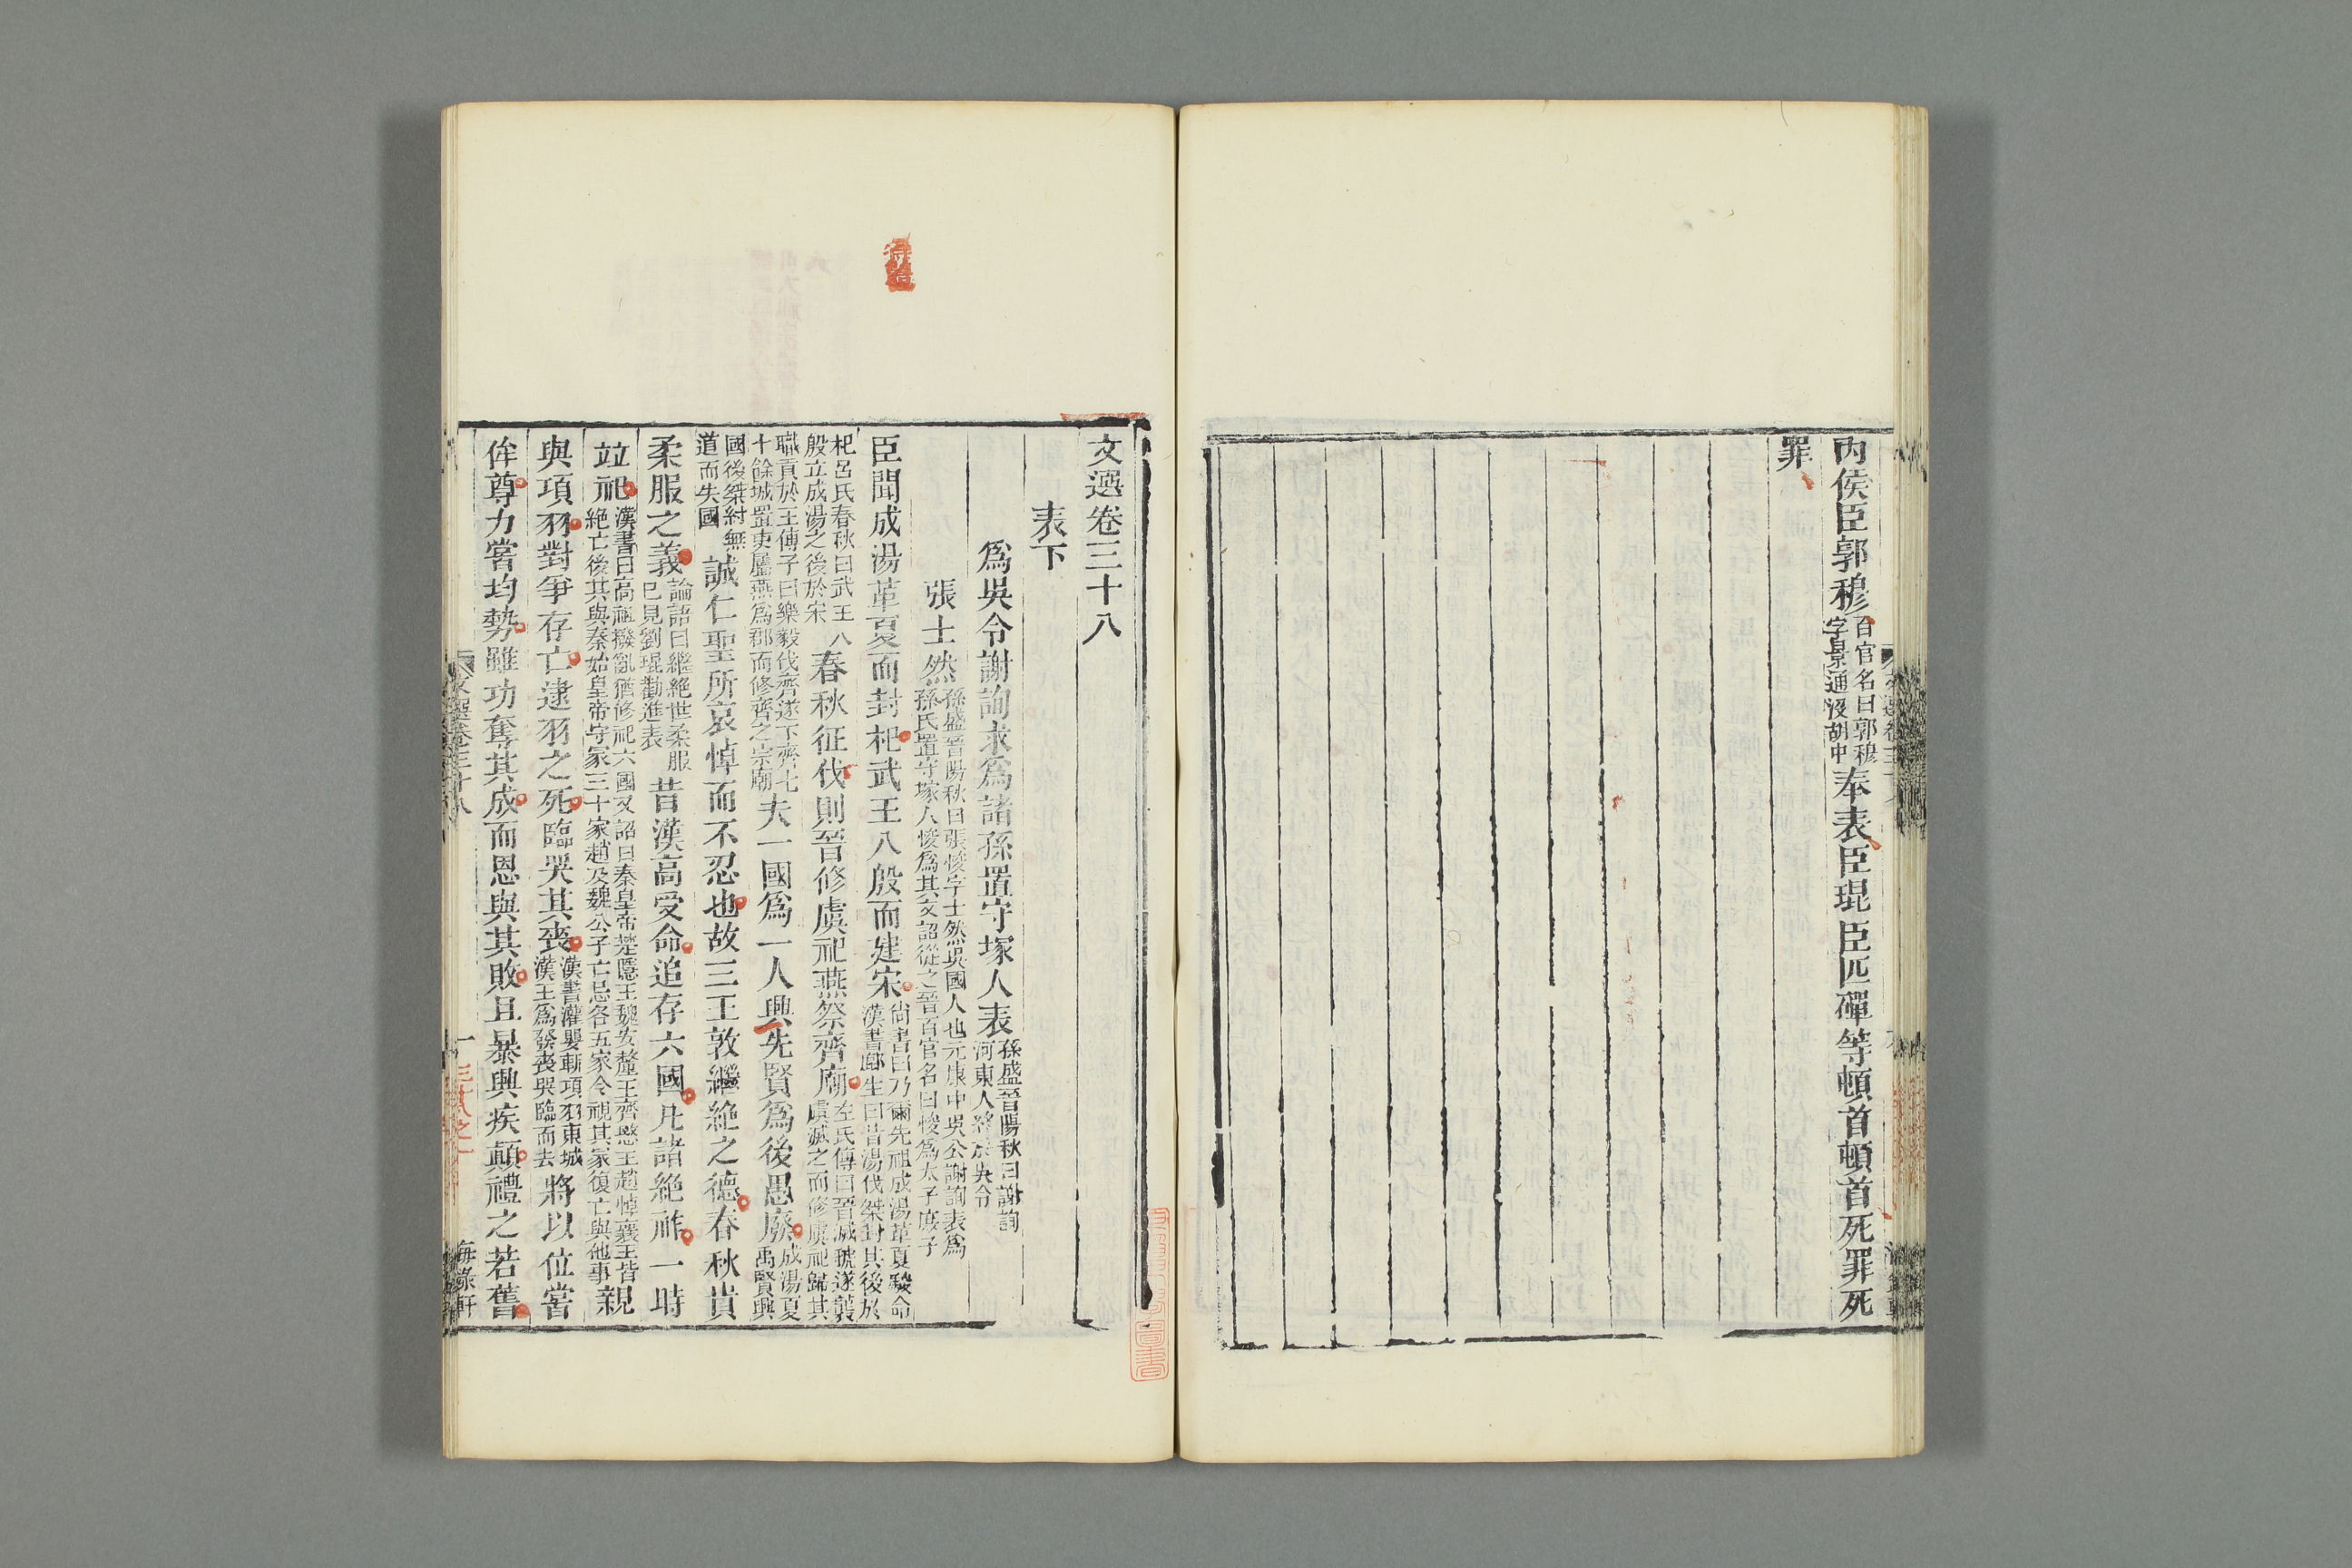 內侯臣郭穆百官名曰郭穆字景通沒胡中奉表臣琨臣匹磾等頓首頓首死罪死
罪
文選卷三十八
表下
爲吳令謝詢求爲諸孫置守塚人表孫盛晉陽秋曰謝詢河東人終於吳令
張士然孫盛晉陽秋曰張悛字士然吳國人也元康中吳令謝詢表爲孫氏置守塚人悛爲其文詔從之晉百官名曰悛爲太子庶子
臣聞成湯革夏而封杞武王入殷而建宋尚書曰乃爾先祖成湯革夏駿命漢書酈生曰昔湯伐桀封其後於
杞呂氏春秋曰武王入殷立成湯之後於宋春秋征伐則晉修虞祀燕祭齊廟左氏傳曰晉滅虢遂襲虞滅之而修虞祀歸其
職貢於王傅子曰樂毅伐齊遂下齊七十餘城置吏屬燕爲郡而修齊之宗廟夫一國爲一人興先賢爲後愚廢成湯夏禹賢興
國後桀紂無道而失國誠仁聖所哀悼而不忍也故三王敦繼絕之德春秋貴
柔服之義論語曰繼絕世柔服已見劉琨勸進表昔漢高受命追存六國凡諸絕祚一時
竝祀漢書曰高祖撥亂猶修祀六國又詔曰秦皇帝楚隱王魏安釐王齊愍王趙悼襄王皆絕亡後其與秦始皇帝守冢三十家趙及魏公子亡忌各五家令視其冢復亡與他事親
與項羽對爭存亡逮羽之死臨哭其喪漢書灌嬰斬項羽東城漢王爲發喪哭臨而去將以位嘗
侔尊力嘗均勢雖功奪其成而恩與其敗且暴興疾顛禮之若舊
文選卷三十八
一
海錄軒